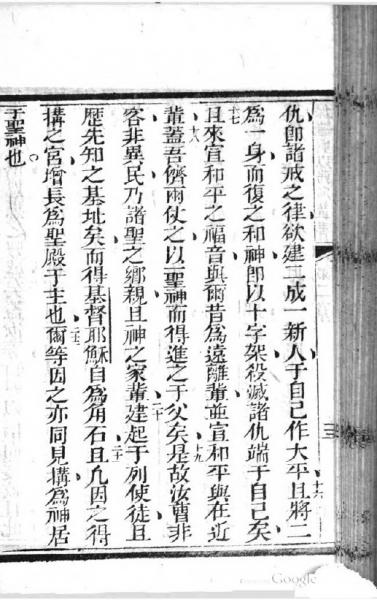 仇卽諸戒之律欲建二成一新人于自己作大平且將二
十六
爲一身而復之和神卽以十字架殺滅諸仇端于自己矣
十七
且來宣和平之福音與爾昔爲遠離輩並宣和平與在近
十八
輩蓋吾儕兩仗之以一聖神而得進之于父矣是故汝曹非
十九
客非異民乃諸聖之鄕親且神之家輩建起于列使徒且
二十
歷先知之基址矣而得基督耶穌自爲角石且凢因之得
二一
搆之宮增長爲聖殿于主也爾等因之亦同見搆爲神居
二二
于聖神也
Google